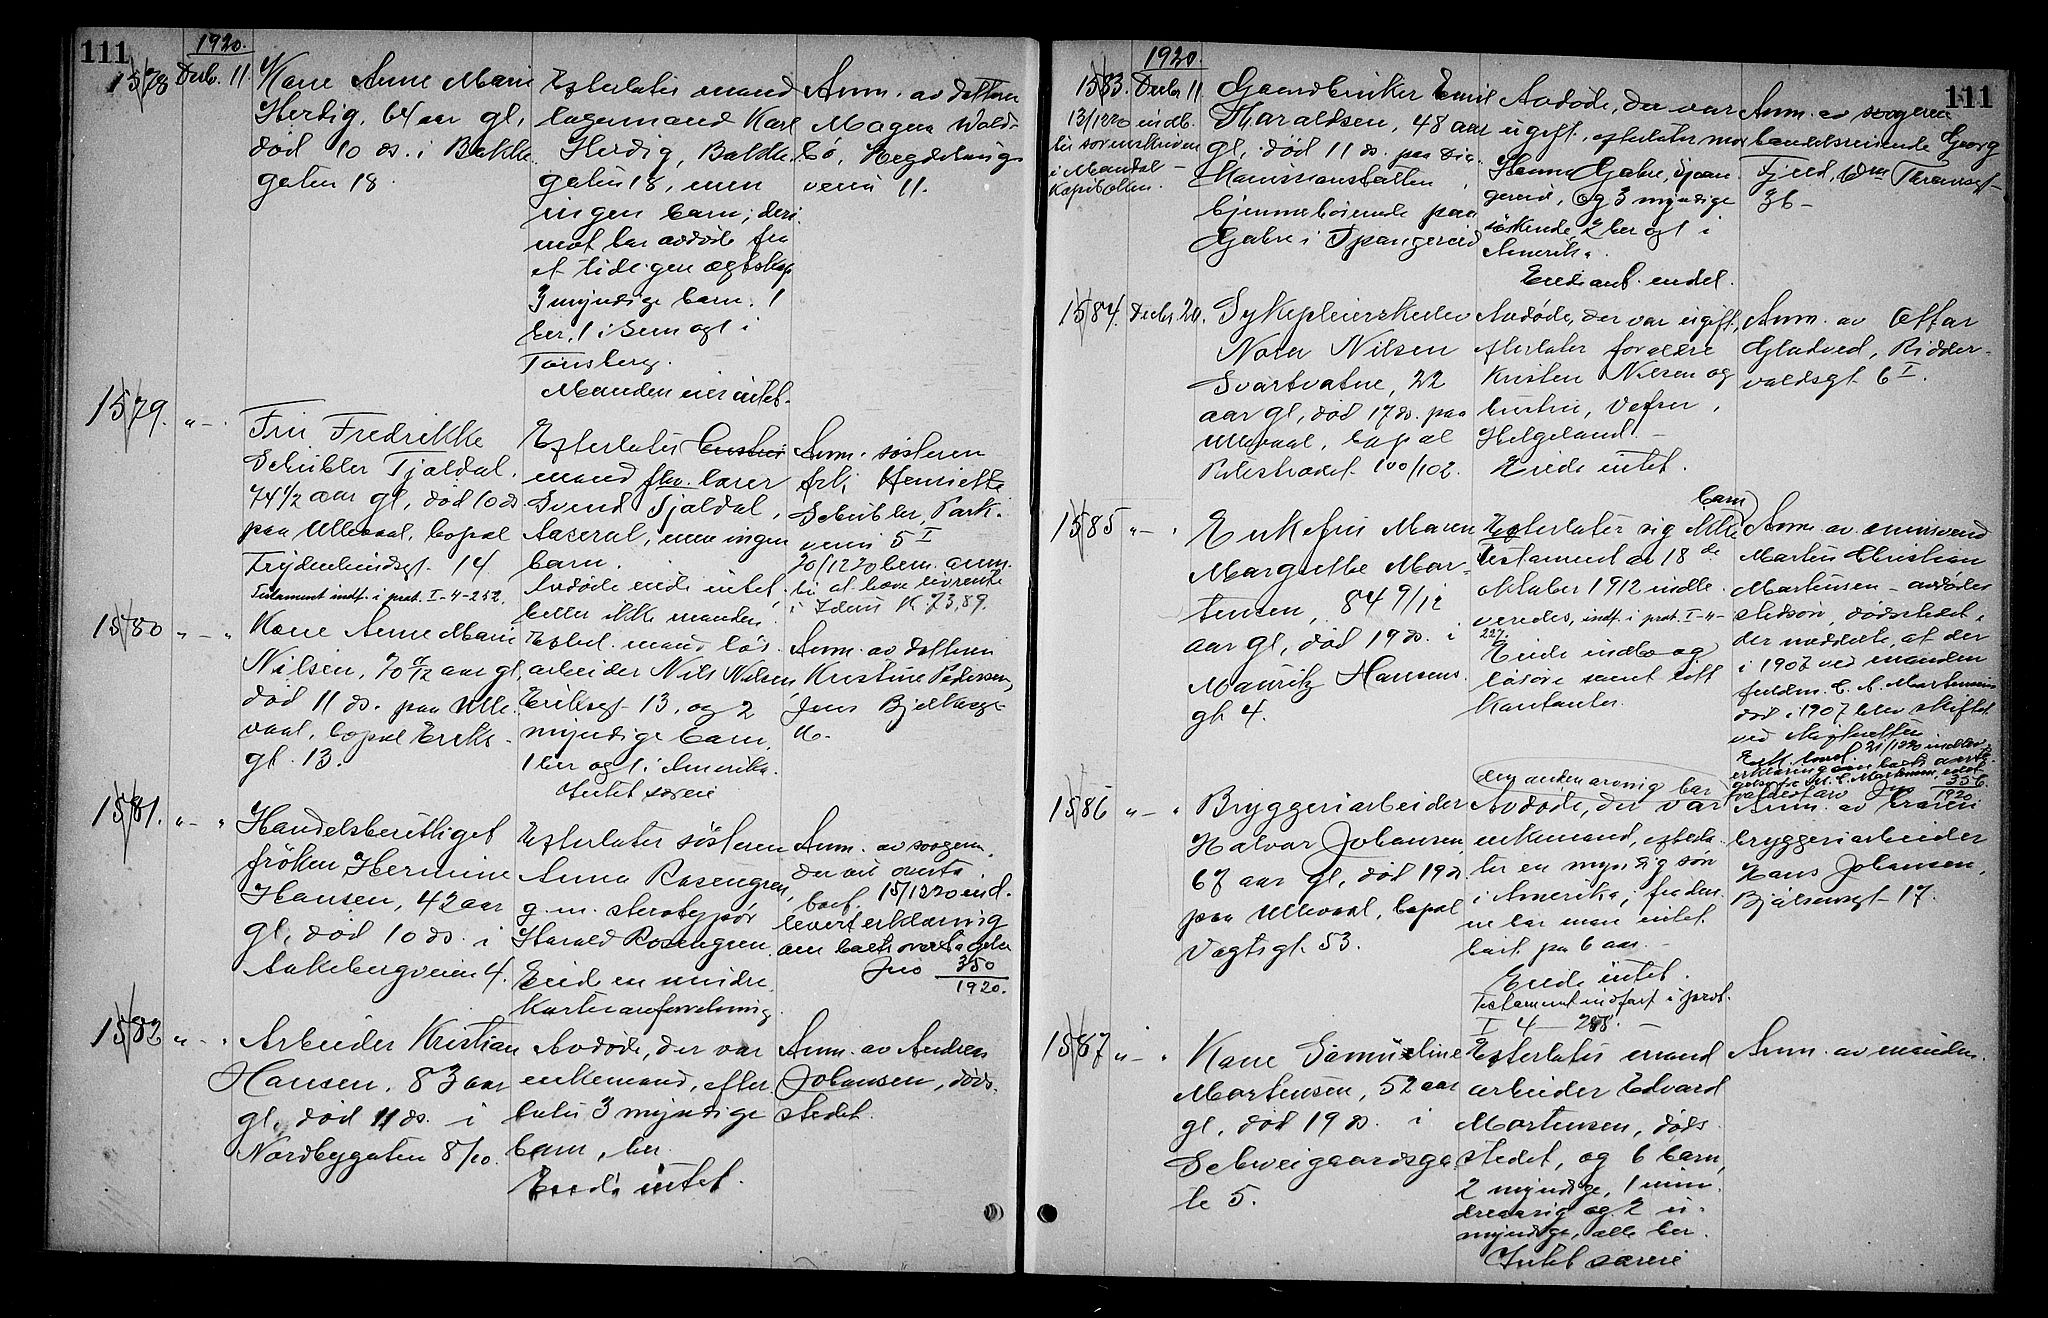 111
1920.
1578
Decb. 11.
Kone Anne Marie
Herdig, 64 aar gl.,
død 10 ds. i Bakke
gaten 18.
Efterlater mand
lagermand Karl
Herdig, Bakke
gaten 18, men
ingen barn; deri
mot har avdøde fra
et tidligere egteskap
3 myndige barn. 1
her, 1 i Sem og 1 i
Tønsberg.
Manden eier intet.
Anm. av datteren
Magna
Hegdehaugs
veien 11.
1579.
"—"
Fru Fredrikke
Schibler Tjaldal,
74 1/2 aar gl, død 10 ds
paa Ullevaal, bopæl
Frydenlundsgt. 14
Testament indf. i prot. I-4-252.
Efterlater
mand fhv. lærer
Svend Tjaldal,
Aaseral, men ingen
barn.
Avdøde eiede intet,
heller ikke manden.
Anm. søsteren
frk. Henriette
Schibler, Park-
veien 5 I
20/12 20 bem. anm.
at have livrente
i Idun K 73,89.
1580
"—"
Kone Anne Marie
Nilsen, 70 aar gl,
død 11 ds. paa Ulle-
vaal, bopæl Eriks-
gt. 13.
Efterl. mand løs-
arbeider Nils Nilsen
Eriksgt. 13, og 2
myndige barn,
1 her og 1 i Amerika.
Intet særeie
Anm. av datteren
Kristine Pedersen,
Jens Bjelkesgt.
1581.
"—"
Handelsberettiget
frøken Hermine
Hansen, 42 aar
gl, død 10 ds. i
Aakebergveien 4.
Efterlater søsteren
Anna Rosengren,
g. m. sterotypør
Harald Rosengren.
Eiede en mindre
kortevareforretning
Anm. av svogeren,
der vil overta
boet. 15/12 20 ind-
levert erklæring
om boets overtagelse
Jno 350
1920.
1582
"—"
Arbeider Kristian
Hansen, 83 aar
gl, død 11 ds. i
Nordbygaten 8/10.
Avdøde, der var
enkemand, efter
later 3 myndige
barn, her.
Eiede intet.
Anm. av Andreas
Johansen, døds-
stedet.
111
1920.
1583.
Decbr 11
13/12 20 indb.
til sorenskriveren
i Mandal
Kapitollen.
Gaardbruker Emil
Haraldsen, 48 aar
gl, død 11 ds. paa Dia-
konissanstalten,
hjemmehørende paa
Gahre i Spangereid
Avdøde, der var
ugift, efterlater mor
Hanna Gahre, Span-
gereid, og 3 myndige
søskende, 2 her og 1 i
Amerika.
Eiedes ant. endel.
Anm. av svogeren
handelsreisende Georg
Fjeld, Thranesgt.
36-
1584.
Decbr 20.
Sykepleierskeelev
Nora Nilsen
Svartvatne, 22
aar gl, død 17 ds. paa
Ullevaal, bopæl
Pilestrædet 100/102.
Avdøde, der var ugift,
efterlater forældre
Kristen Nilsen og
hustru, Vefsn,
Helgeland.
Eiede intet.
Anm. av Ottar
Gladved, Ridder-
voldsgt. 6 I.
1585
"—"
Enkefru Maren
Margrethe Mor-
tensen, 84 9/12
aar gl, død 19 ds. i
Mauritz Hansens
gt. 4.
barn
Efterlater sig ikke
Testament av 18de
oktober 1912 indle-
veredes, indf. i prot. I-4-
227.
Eiede indbo og
løsøre samt litt
kontanter.
Anm. av
Martin Christian
Mortensen - avdødes
stedsøn, dødsstedet,
der meddelte, at der
i 1907 ved manden
fuldm. C. A. Mortensens
død i 1907 blev skiftet
ved Skifteretten
21/12 20 indlev.
erklæring om boets overta-
gelse
Jno
1920
1586
"—"
Bryggeriarbeider
Halvar Johansen,
67 aar gl, død 19 ds
paa Ullevaal, bopæl
Vogtsgt. 53.
Avdøde, der var
enkemand, efterla-
ter en myndig søn
i Amerika; fra den-
ne har man intet
hørt paa 6 aar.
Eiede intet.
Testament indført i prot.
I 4 — 258.
Anm. av broren
bryggeriarbeider
Hans Johansen,
Bjølsensgt. 17.
1587
"—"
Kone Samueline
Mortensen, 52 aar
gl, død 19 ds. i
Schweigaardsga
te 5.
Efterlater mand
arbeider Edvard
Mortensen, døds-
stedet, og 6 barn,
2 myndige, 1 min-
dreaarig og 2 u-
myndige, alle her.
Intet særeie
Anm. av manden.